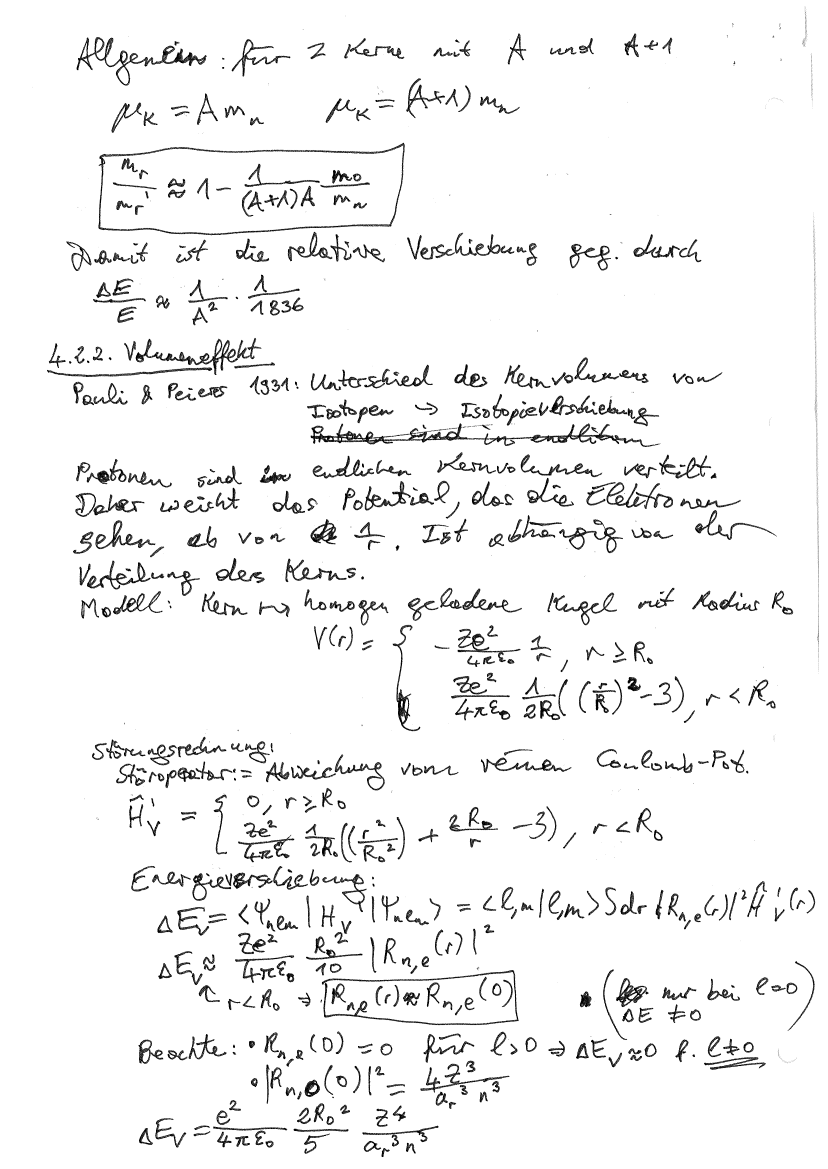 Allgemein: für 2 Kerne mit A und A+1
μ_K = A m_n    μ_K = (A+1) m_n
m_r / m_r' ≈ 1 - 1/((A+1)A) m_0/m_n
Damit ist die relative Verschiebung geg. durch
ΔE/E ≈ 1/A² · 1/1836
4.2.2. Volumeneffekt
Pauli & Peierls 1931: Unterschied des Kernvolumens von
Isotopen → Isotopieverschiebung
Protonen sind in endlichem
Protonen sind im endlichen Kernvolumen verteilt.
Daher weicht das Potential, das die Elektronen
sehen, ab von 1/r. Ist abhängig von der
Verteilung des Kerns.
Modell: Kern ↦ homogen geladene Kugel mit Radius R₀
V(r) = { -Ze²/(4πε₀) 1/r, r ≥ R₀
Ze²/(4πε₀) 1/(2R₀) ((r/R₀)² - 3), r < R₀
Störungsrechnung:
Störoperator := Abweichung vom reinen Coulomb-Pot.
Ĥ'_V = { 0, r ≥ R₀
Ze²/(4πε₀) 1/(2R₀) ((r²/R₀²) + 2R₀/r - 3), r < R₀
Energieverschiebung:
ΔE_V = ⟨Ψ_nlm | H_V | Ψ_nlm⟩ = ⟨l,m|l,m⟩ ∫dr |R_n,l(r)|² Ĥ'_V(r)
ΔE_V ≈ Ze²/(4πε₀) R₀²/10 |R_n,l(r)|²
↖ r < R₀ ⇒ R_n,l(r) ≈ R_n,l(0)
(nur bei l=0
ΔE ≠ 0)
Beachte: • R_n,l(0) = 0 für l>0 ⇒ ΔE_V ≈ 0 f. l≠0
• |R_n,0(0)|² = 4Z³/(a_r³ n³)
ΔE_V = e²/(4πε₀) 2R₀²/5 Z⁴/(a_r³ n³)